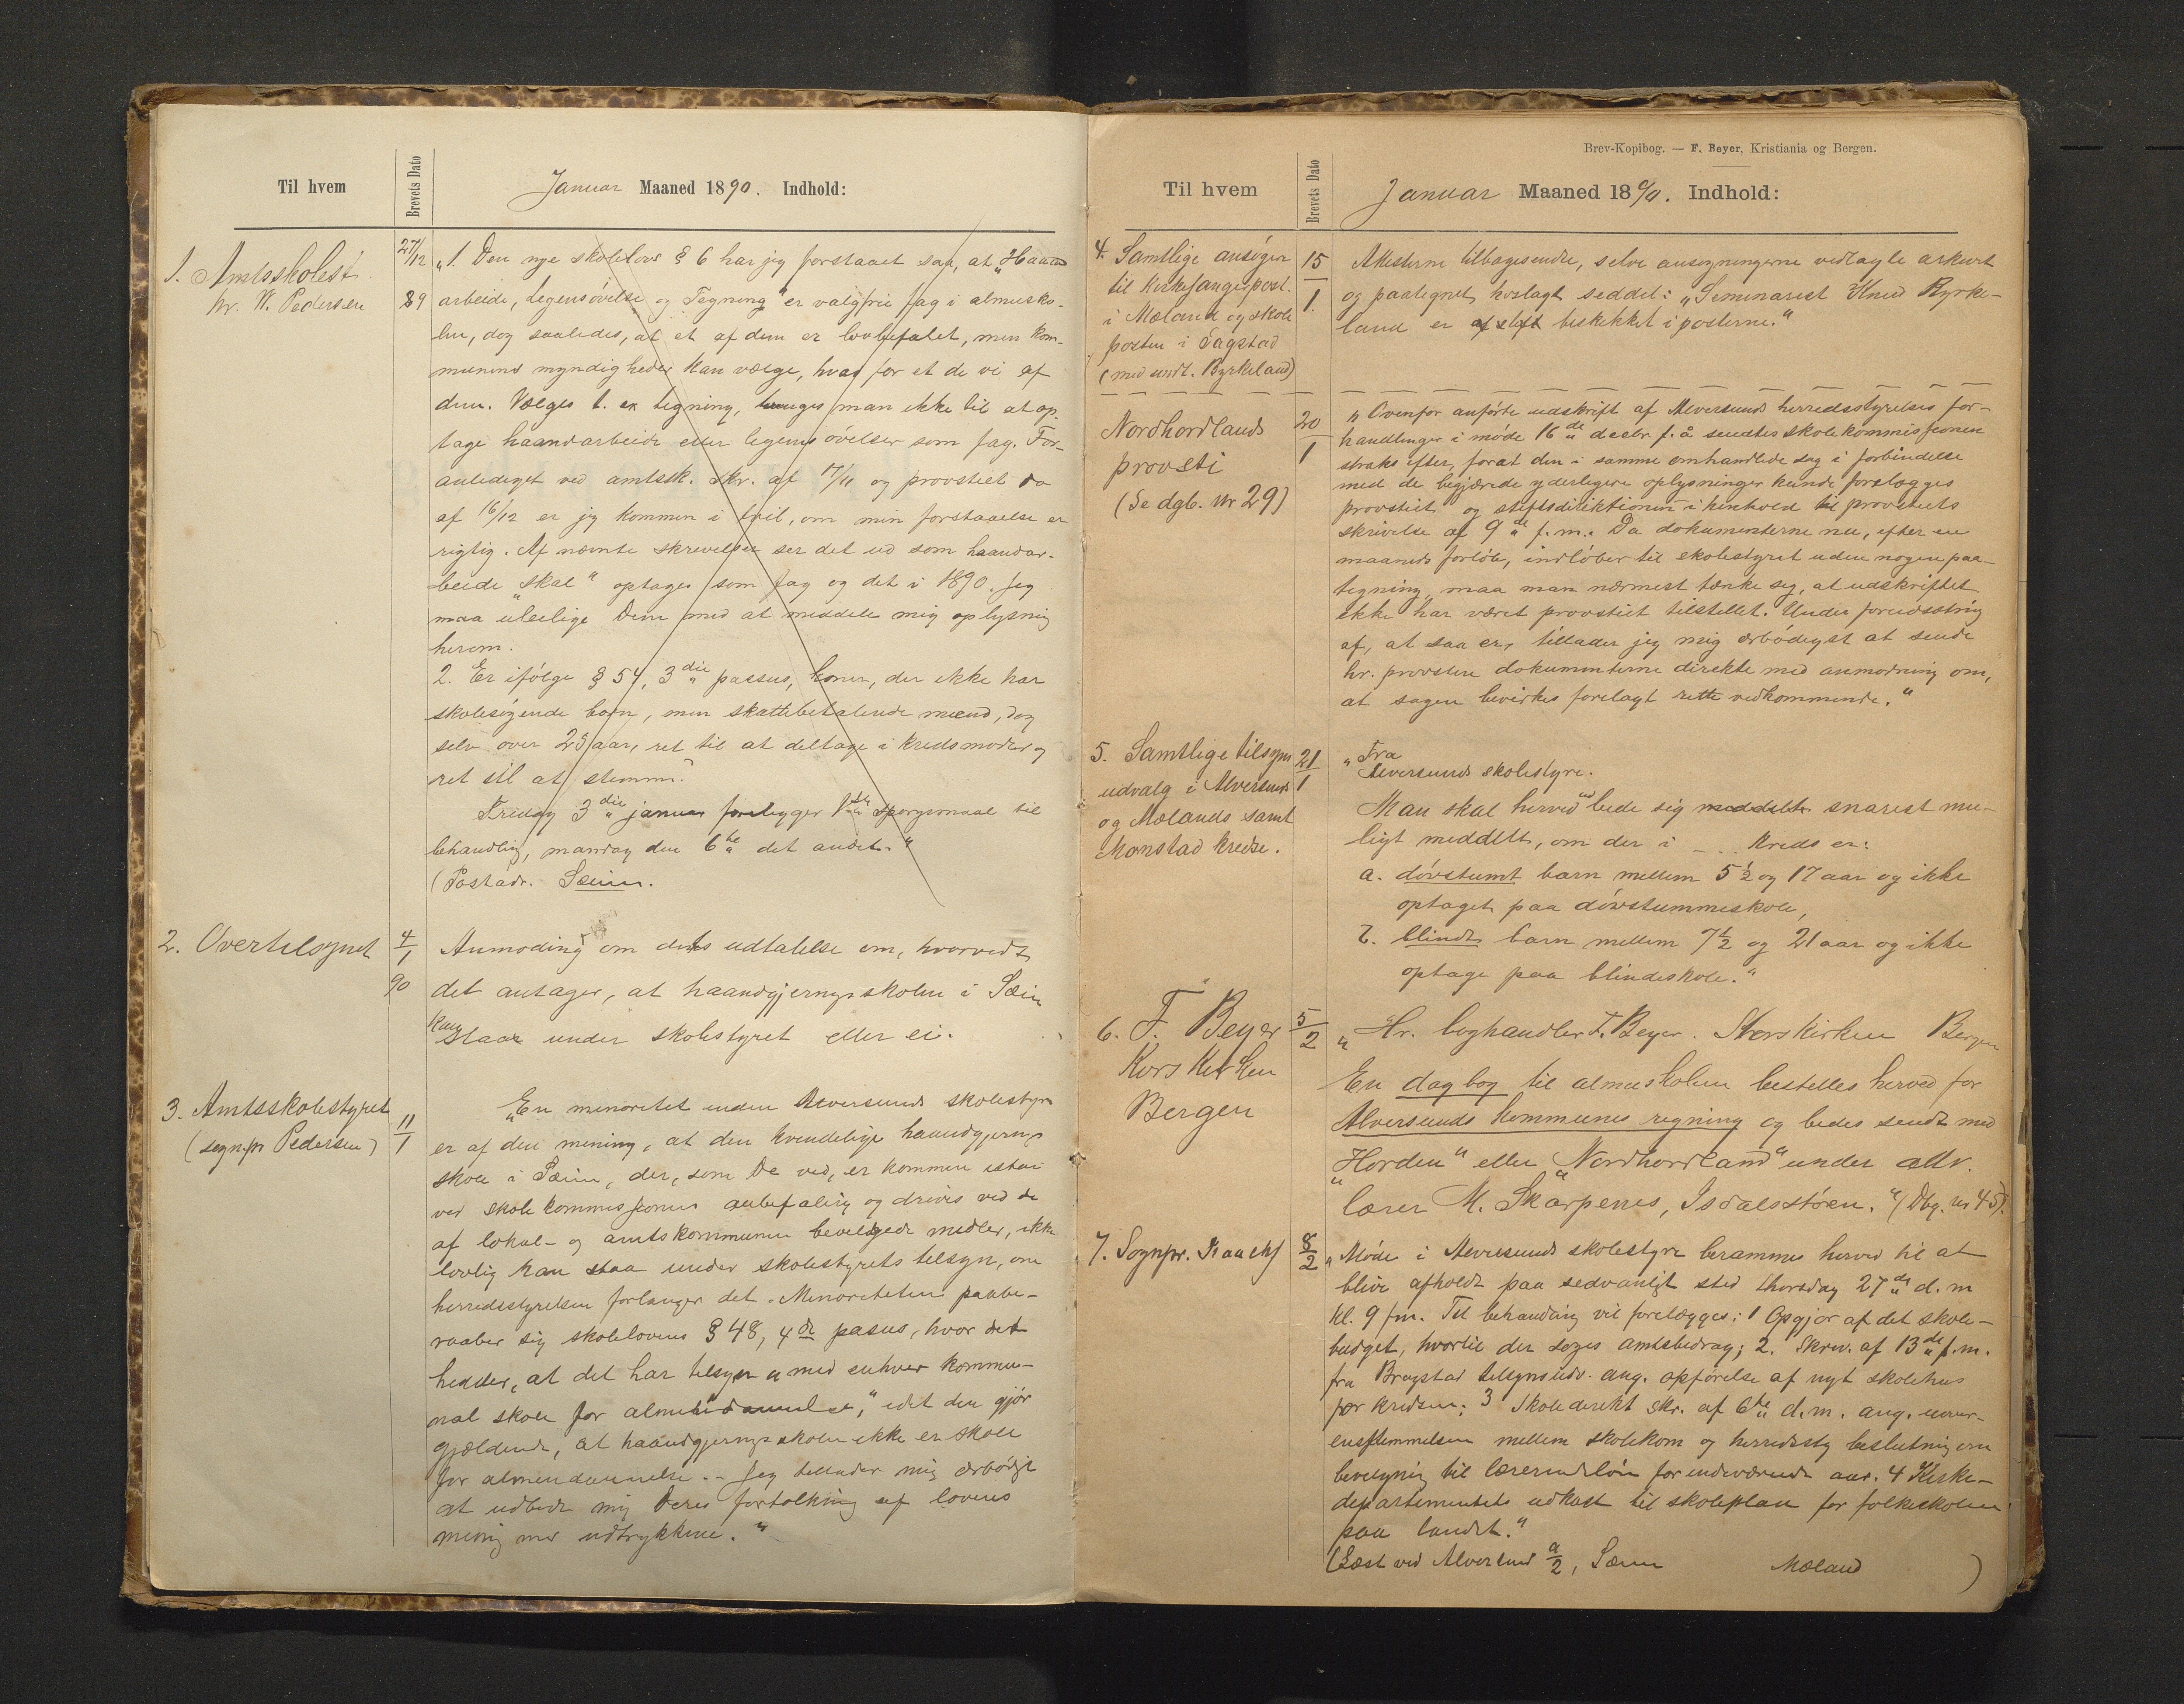 Til hvem
Brevets Dato
Januar Maaned 1890. Indhold:
1. Amtsskolest.
hr. W. Pedersen
27/12
89
„1. Den nye skolelovs § 6 har jeg forstaaet saa, at „Haand
arbeide, Legemsøvelse og Tegning“ er valgfrie fag i almuesko-
len, dog saaledes, at et af dem er lovbefalet, men kom-
munens myndigheder kan vælge, hvad for et de vil af
dem. Vælges t. ex tegning, tvinges man ikke til at op-
tage haandarbeide eller legemsøvelser som fag. For-
anlediget ved amtssk. skr. af 17/11 og provstiets do
af 16/12 er jeg kommen i tvil, om min forstaaelse er
rigtig. Af nævnte skrivelser ser det ud som haandar-
beide „skal“ optages som fag og det i 1890. Jeg
maa uleilige Dem med at meddele mig oplysning
herom.
2. Er ifølge § 54, 3die passus, koner, der ikke har
skolesøgende børn, men skattebetalende mænd, dog
selv over 25 aar, ret til at deltage i kredsmøder og
ret til at stemme?
Fredag 3die januar foreligger 1ste spørgsmaal til
behandling, mandag den 6te det andet.“
(Postadr. Sæim.
2. Overtilsynet
4/1
90
Anmoding om dets udtalelse om, hvorvidt
det antager, at haandgjerningsskolen i Sæim
kan staa under skolestyret eller ei.
3. Amtsskolestyret
(sognpr Pedersen)
11/1
„En minoritet inden Alversunds skolestyre
er af den mening, at den kvindelige haandgjernings
skole i Sæim, der, som De ved, er kommen istand
ved skolekommissionens anbefaling og drives ved de
af lokal- og amtskommunen bevilgede midler, ikke
lovlig kan staa under skolestyrets tilsyn, om
herredsstyrelsen forlanger det. Minoriteten paabe-
raaber sig skolelovens § 48, 4de pasus, hvor det
hedder, at det har tilsyn „med enhver kommu-
nal skole for almendannelse,“ idet den gjør
gjældende, at haandgjerningsskolen ikke er skole
for almendannelse. – Jeg tillader mig ærbødigst
at udbede mig Deres fortolkning af lovens
mening med udtrykkene.“
Brev-Kopibog. — F. Beyer, Kristiania og Bergen.
Til hvem
Brevets Dato
Januar Maaned 1890. Indhold:
4. Samtlige ansøgere
til Kirkesangerpost.
i Mæland og skole
posten i Tagstad
(med undt. Byrkeland)
15/1
Attesterne tilbagesendte, selve ansøgningerne vedlagte arkivet
og paategnet kvslagt seddel: „Seminarist Knud Byrke-
land er af stift beskikket i posterne.“
Nordhordlands
provsti
(Se dgb. nr 29)
20/1
„Ovenfor anførte udskrift af Alversunds herredsstyrelses for-
handlinger i møde 16de decbr f. å sendtes skolekommissionen
straks efter, forat den i samme omhandlede sag i forbindelse
med de begjærede yderligere oplysninger kunde forelægges
provstiet og stiftsdirektionen i henhold til provstiets
skrivelse af 9de f.m. Da dokumenterne nu, efter en
maaneds forløb, indløber til skolestyret uden nogen paa-
tegning, maa man nærmest tænke sig, at udskriftet
ikke har været provstiet tilstillet. Under forudsætning
af, at saa er, tillader jeg mig ærbødigst at sende
hr. provsten dokumenterne direkte med anmodning om,
at sagen bevirkes forelagt rette vedkommende.“
5. Samtlige tilsyns
udvalg i Alversunds
og Mælands samt
Monstad kredse.
21/1
„Fra
Alversunds skolestyre.
Man skal herved udbede sig meddelt snarest mu-
ligt meddelt, om der i – . . kreds er:
a. døvstumt barn mellem 5½ og 17 aar og ikke
optaget paa døvstummeskole,
b. blindt barn mellem 7½ og 21 aar og ikke
optage paa blindeskole.“
6. F. Beyer
Korskirken
Bergen
5/2
„Hr. boghandler F. Beyer. Korskirken Bergen
En dagbog til almueskolen bestilles herved for
Alversunds kommunes regning og bedes sendt med
„Horden“ eller „Nordhordland“ under adr.
lærer M. Skarpenes, Isdalstøen.“ (Dbg. nr 45).
7. Sognpr.
8/2
„Møde i Alversunds skolestyre berammes herved til at
blive afholdt paa sedvanligt sted thorsdag 27de d. m
kl. 9 fm. Til behandling vil forelægges: 1 Opgjør af det skole-
budget, hvortil der søges amtsbidrag; 2. Skriv. af 13de f.m.
fra Bragstad tilsynsudv. ang. opførelse af nyt skolehus
for kredsen; 3 Skoledirekt skr. af 6te d.m. ang. uover-
ensstemmelsen mellem skolekom og herredssty beslutning om
bevilgning til lærerindeløn for indeværende aar. 4 Kirke-
departementets udkast til skoleplan for folkeskolen
paa landet.“
(Læst ved Alversund 9/2, Sæim Mæland )